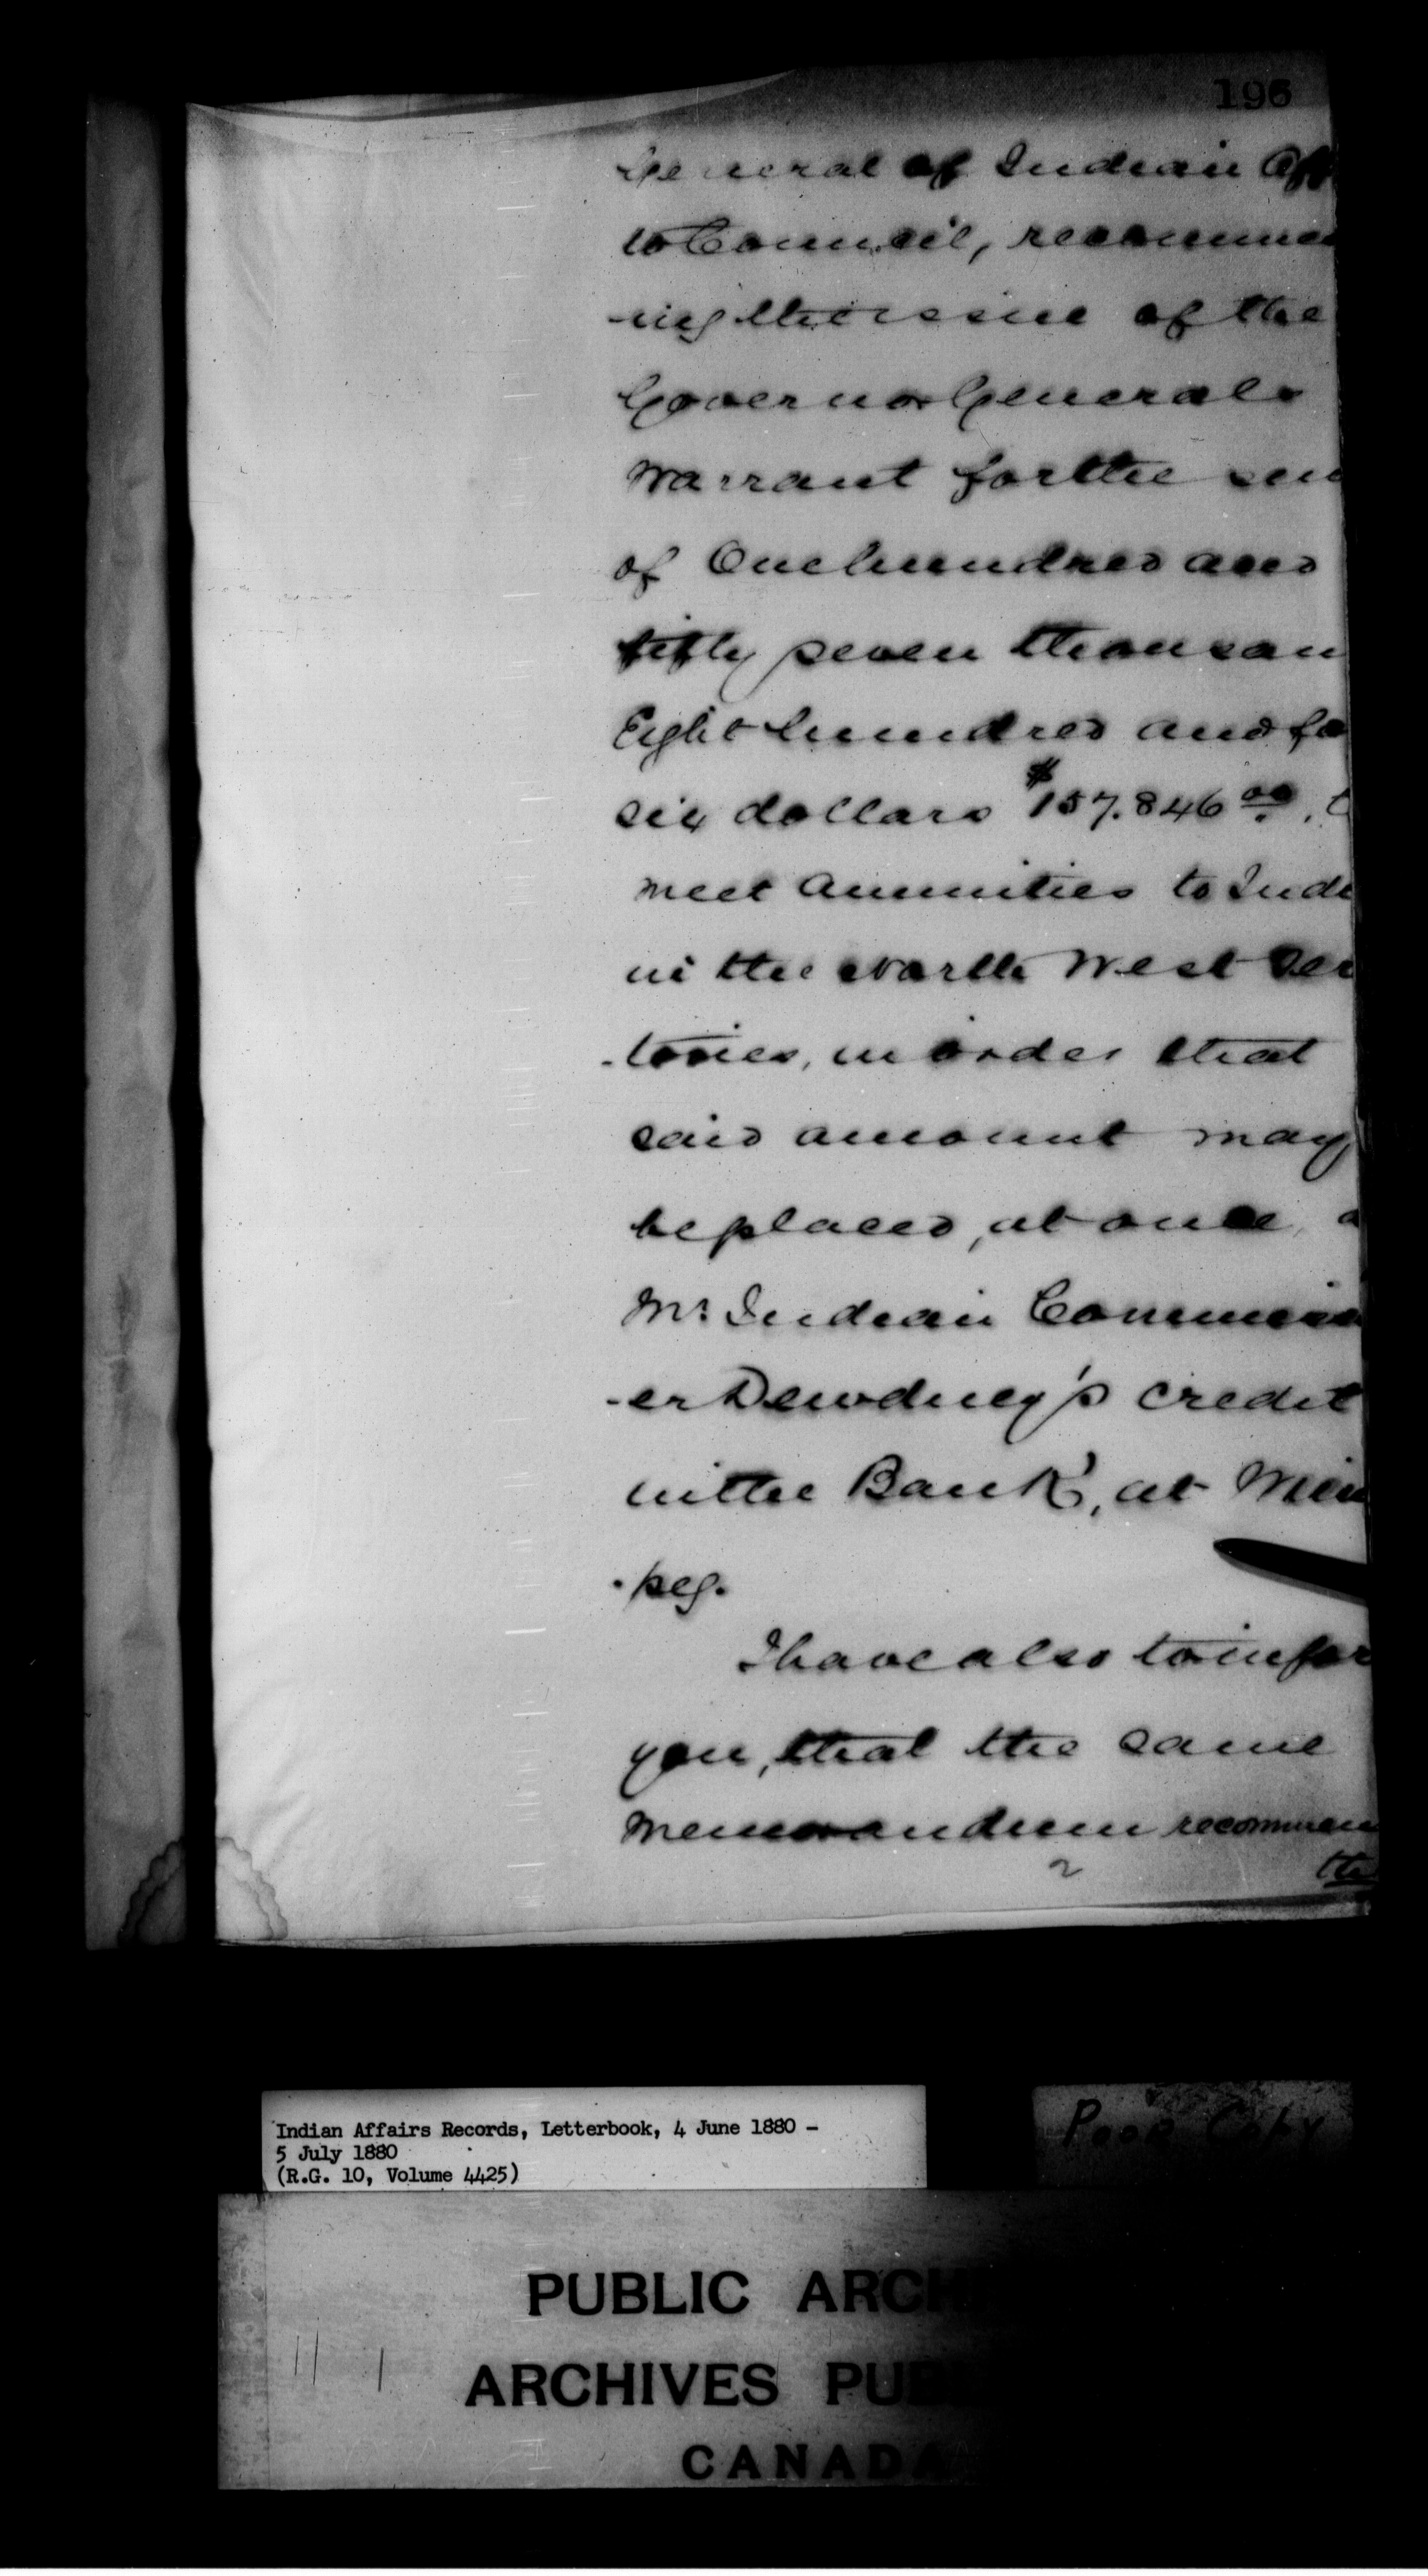 196
General of Indian Aff
to Council, recommen
-ing the issue of the
Governor Generals
Warrant for the sum
of One hundred and
fifty seven thousan
Eight hundred and fo
six dollars $157.846 00, t
meet Annuities to Indi
in the North West Ter
-tories, in order that
said amount may
be placed, at once, o
Mr Indian Commiss
-er Dewdney's credit
in the Bank, at Winn
-peg.
I have also to infor
you, that the same
Memorandum recommen
2 the
Indian Affairs Records, Letterbook, 4 June 1880 -
5 July 1880
(R.G. 10, Volume 4425)
Poor Copy
PUBLIC ARCH
ARCHIVES PUB
CANADA